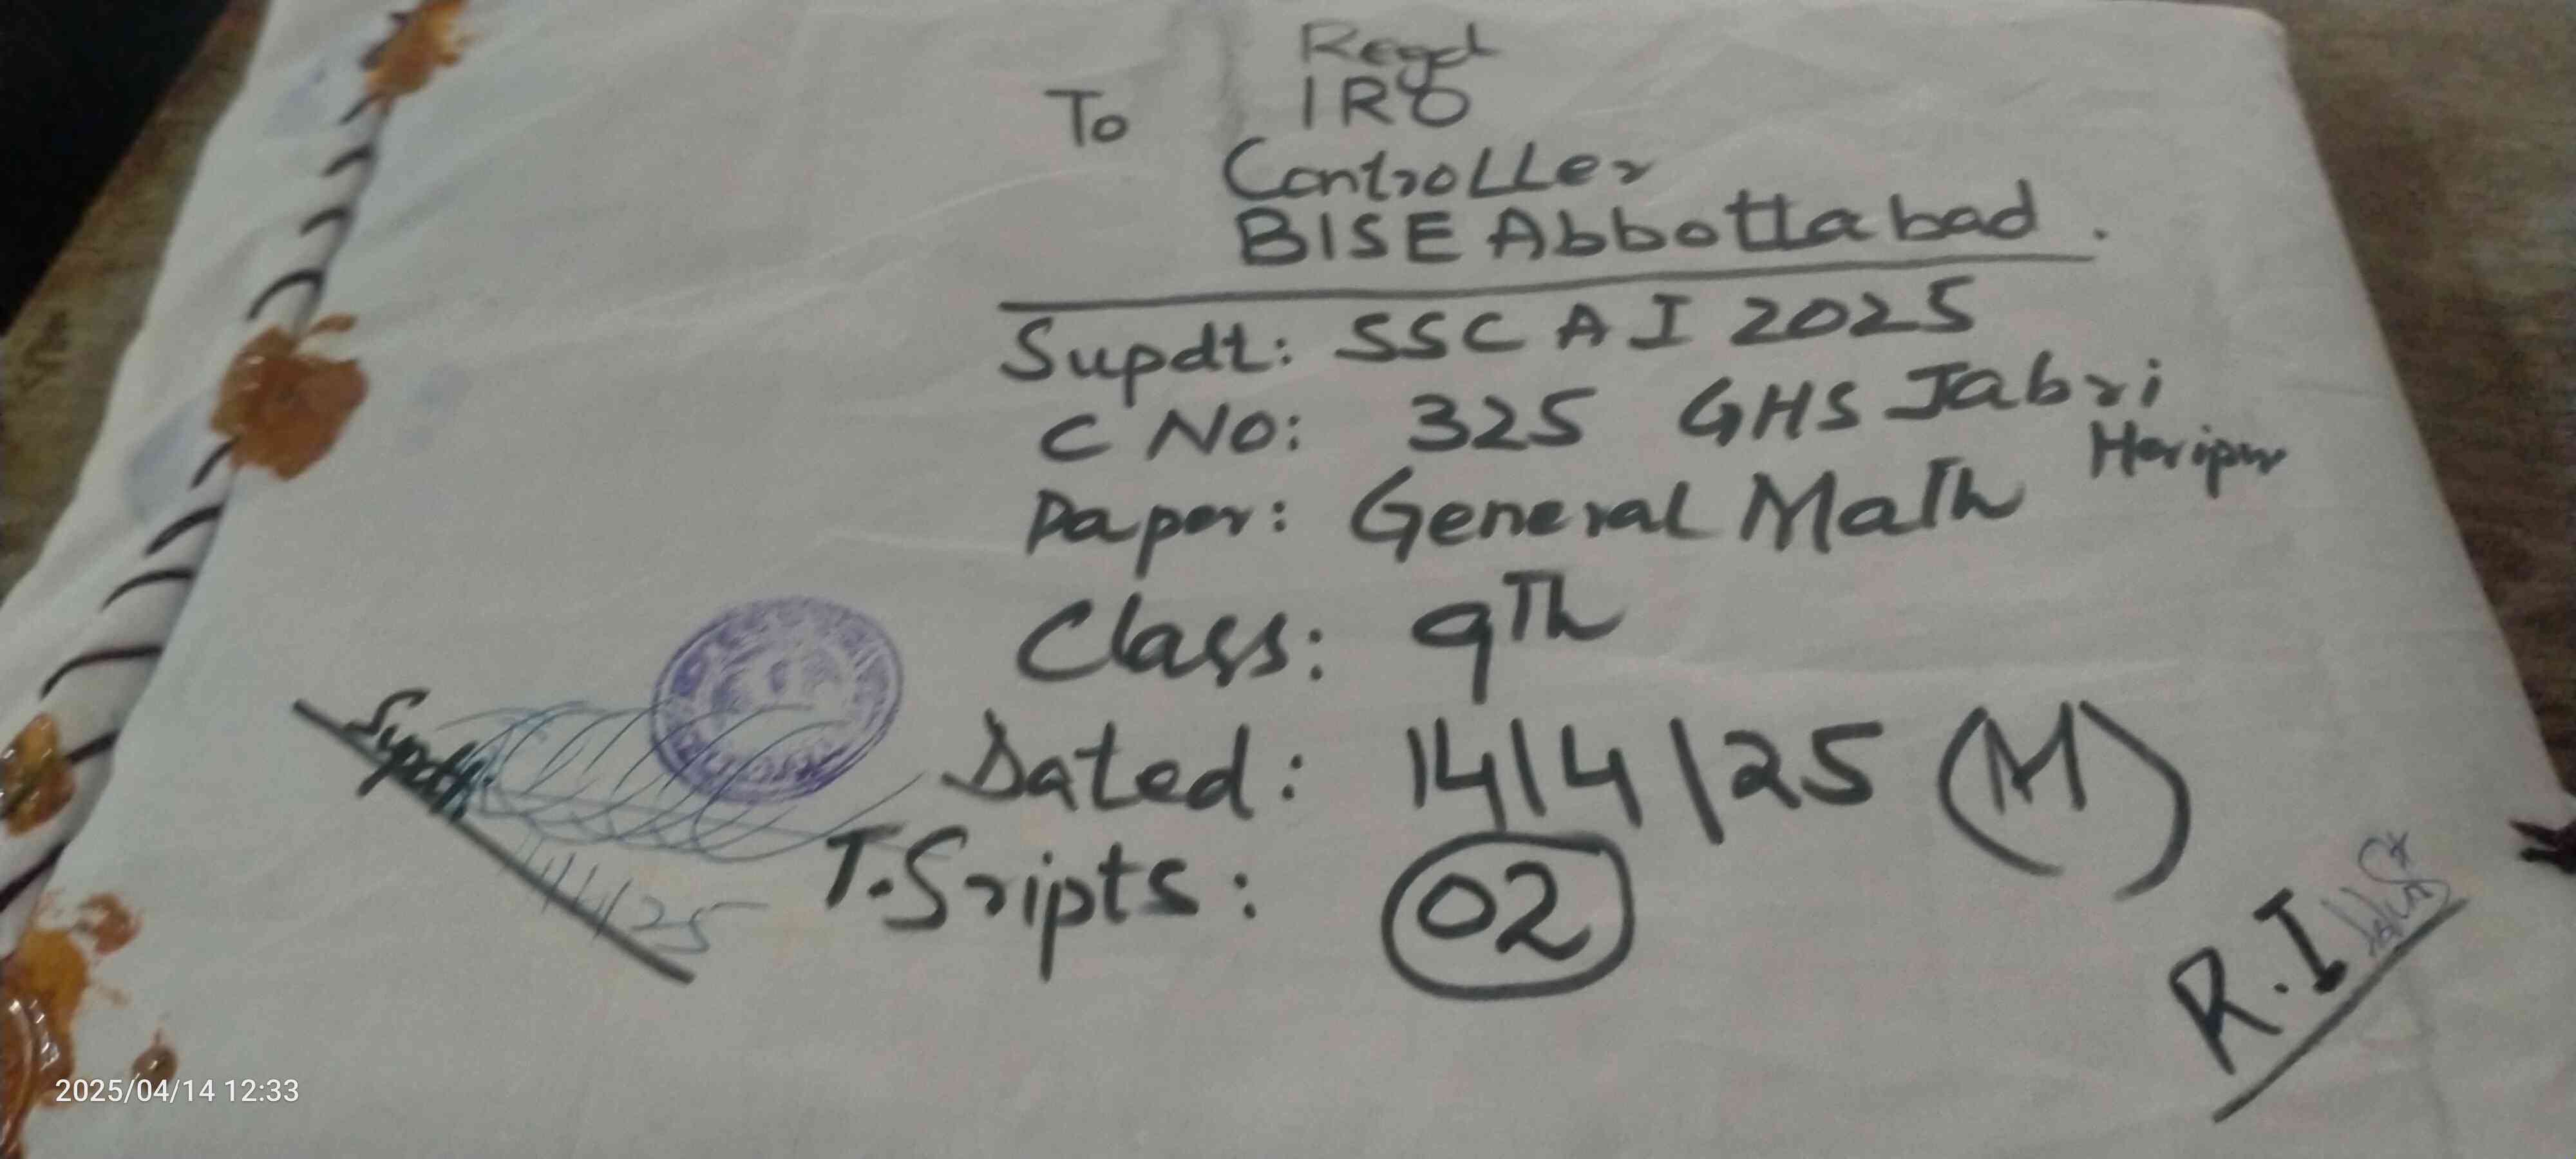 Regd
To IRO
Controller
BISE Abbottabad.
Supdt: SSC A I 2025
C No: 325 GHS Jabri
Haripur
Paper: General Math
Class: 9Th
Dated: 14/4/25 (M)
T.Sripts: 02
Supdt:
14/4/25
R.I
2025/04/14 12:33